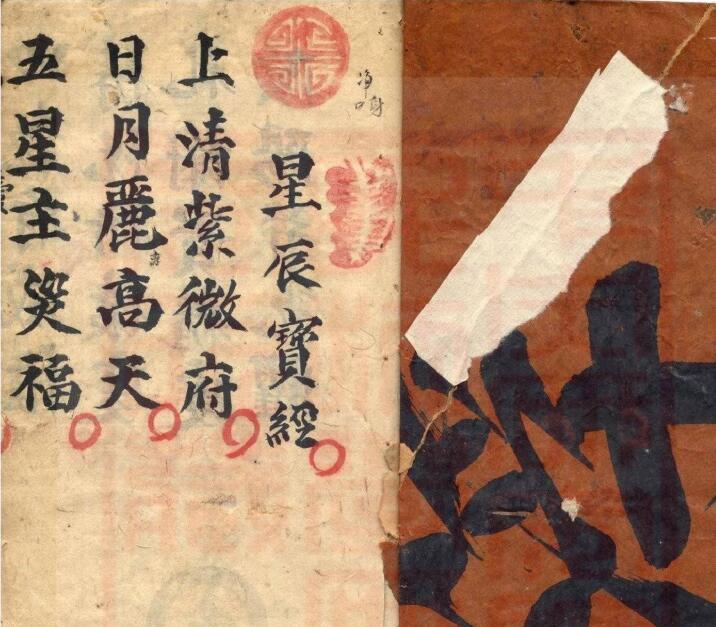 星辰寶經
上清紫微府
日月麗高天
五星主災福